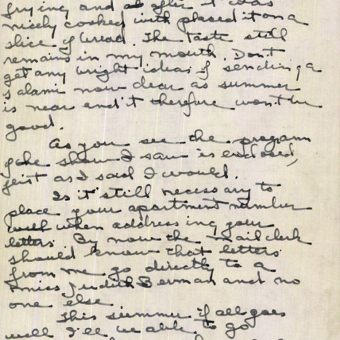 frying and after it was
nicely cooked with placed it on a
slice of bread. The taste still
remains in my mouth. Don't
get any bright ideas of sending a
salami now dear as summer
is near and it therfore won't be
good.
As you see the program
of the show I saw is enclosed,
just as I said I would.
Is it still necessary to
place your apartment number
well when addressing your
letters. By now the mail clerk
should know that letters
from me go directly to a
Miss Judith Berman and no
one else.
This summer if all goes
well I'll be able to go